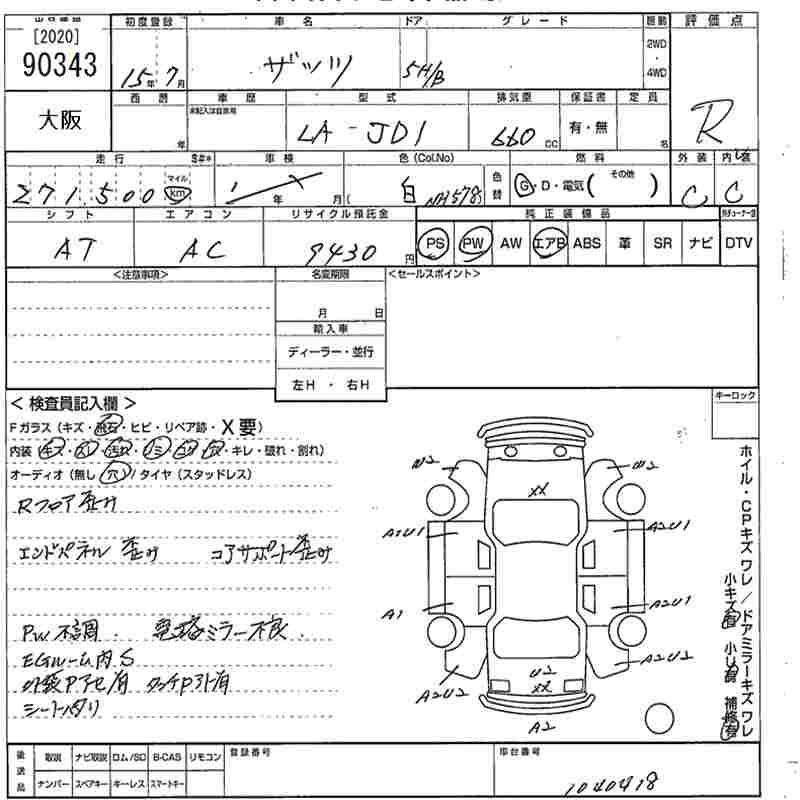 [2020]
90343
大阪
初度登録
15年 7月
車名
ザッツ
ドア
5H/B
グレード
駆動
2WD
4WD
評価点
R
西暦
年
車歴
未記入は自家用
型式
LA-JD1
排気量
660 CC
保証書
有・無
定員
名
走行
S#*
271,500
マイル
km
車検
年 月
色(Col.No)
白 NH578
色替
燃料
G・D・電気( その他 )
外装
C
内装
C
シフト
AT
エアコン
AC
リサイクル預託金
9430 円
純正装備品
PS PW AW エアB ABS 革 SR ナビ DTV
<注意事項>
名変期限
月 日
輸入車
ディーラー・並行
左H・右H
<セールスポイント>
<検査員記入欄>
Fガラス(キズ・飛石・ヒビ・リペア跡・X要)
内装(キズ・スレ・汚れ・シミ・コゲ・穴・キレ・破れ・割れ)
オーディオ(無し・穴)/タイヤ(スタッドレス)
Rフロア歪み
エンドパネル 歪み コアサポート歪み
PW不調. 電格ミラー不良
EGルーム内S
シートヘタリ
キーロック
ホイル・CPキズワレ/ドアミラーキズワレ
小キズ有 小凹有 補修有
U2
U2
XX
A2U1
A2U1
A1
A2U1
A2U2
A2U2
U2
XX
A2
後送品
取説 ナビ取説 ロム/SD B-CAS リモコン
ナンバー スペアキー キーレス スマートキー
登録番号
車台番号
1040418